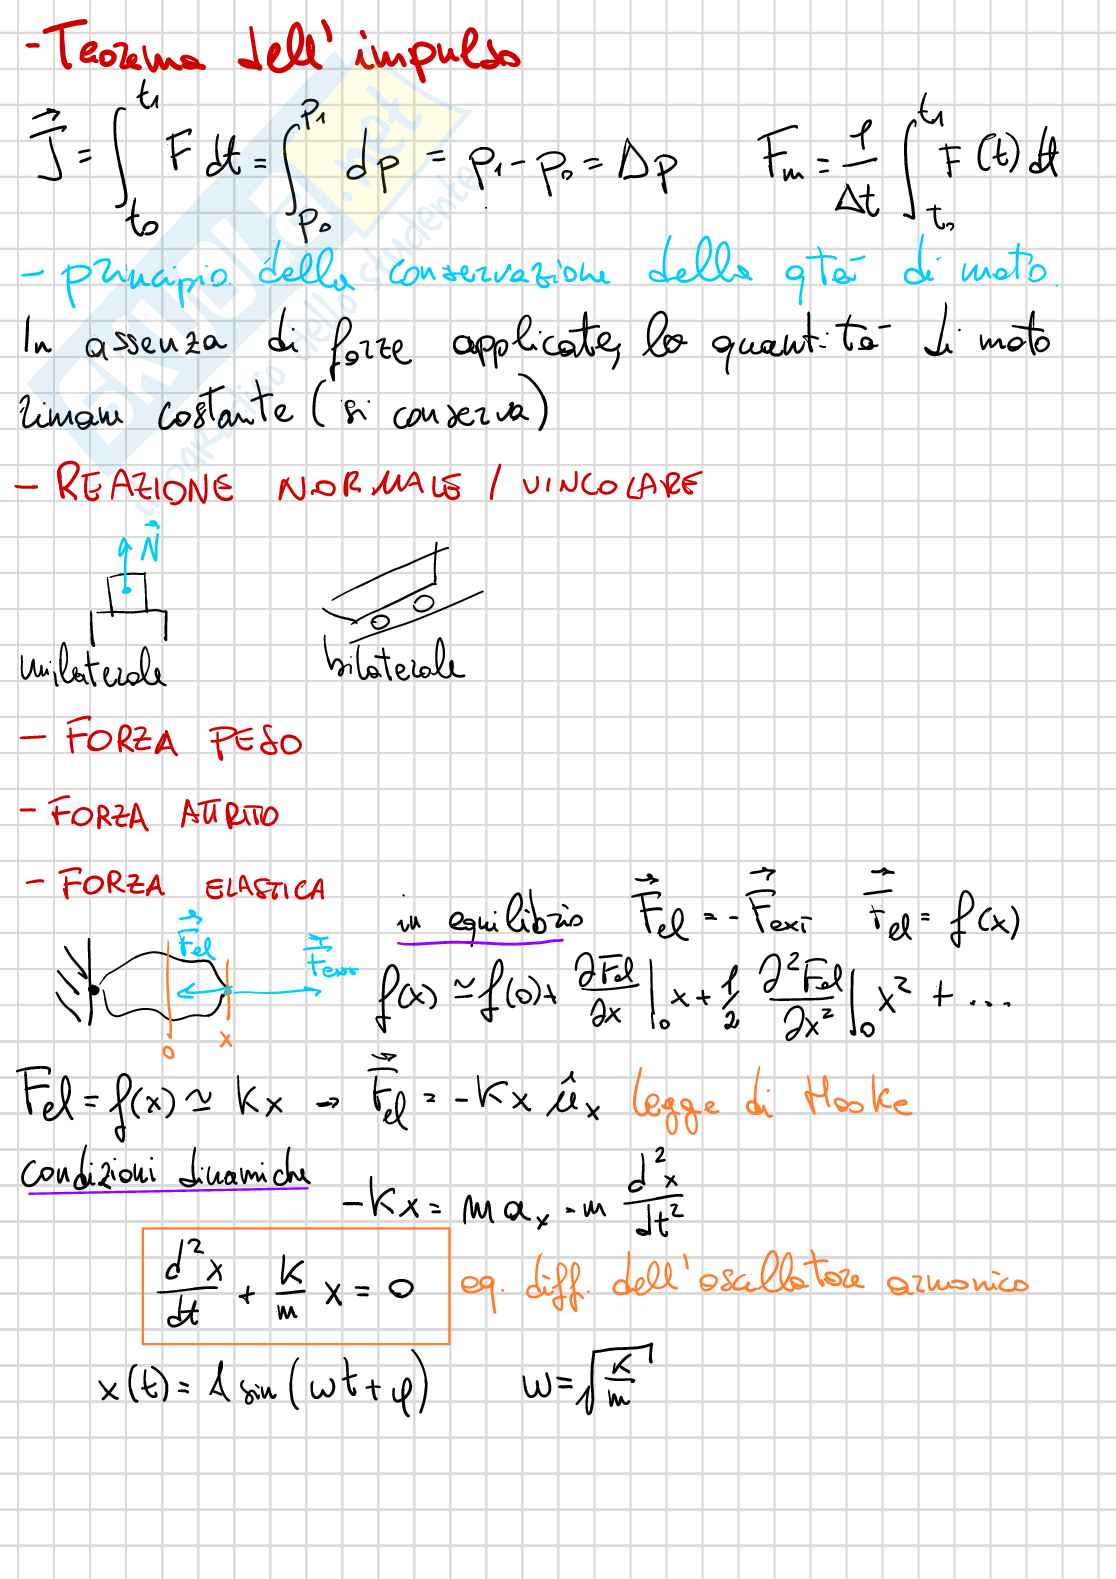 - Teorema dell'impulso
J⃗ = ∫_{t₀}^{t₁} F dt = ∫_{p₀}^{p₁} dp = p₁ - p₀ = Δp    F_m = 1/Δt ∫_{t₀}^{t₁} F(t) dt
- principio della conservazione della qtà di moto.
In assenza di forze applicate, la quantità di moto
rimane costante (si conserva)
- REAZIONE NORMALE / VINCOLARE
N⃗
unilaterale    bilaterale
- FORZA PESO
- FORZA ATTRITO
- FORZA ELASTICA
in equilibrio    F⃗el = - F⃗ext    F⃗el = f(x)
F⃗el    F⃗ext
f(x) ≃ f(0) + ∂Fel/∂x |₀ x + 1/2 ∂²Fel/∂x² |₀ x² + ...
0    x
Fel = f(x) ≃ Kx → F⃗el = -Kx û_x legge di Hooke
condizioni dinamiche
-Kx = m a_x = m d²x/dt²
d²x/dt + K/m x = 0    eq. diff. dell'oscillatore armonico
x(t) = A sin(ωt + φ)    ω = √(K/m)
SKUOLA.net